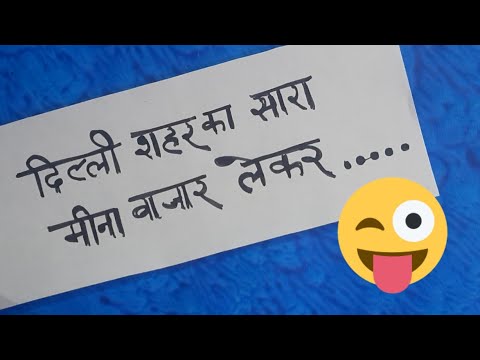 दिल्ली शहर का सारा
मीना बाजार लेकर.....